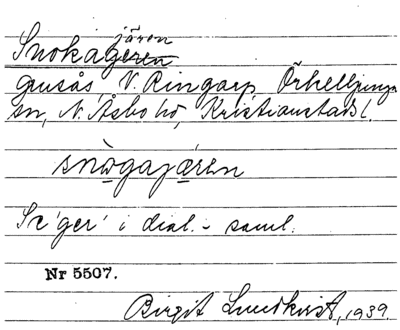 jären
Snokageren
gusås, V. Ringarp, Örkelljunga
sn, N. Åsbo hd, Kristianstads l.
snògajären
Se 'ger' i dial.-saml.
Nr 5507.
Birgit Lundkvist, 1939.